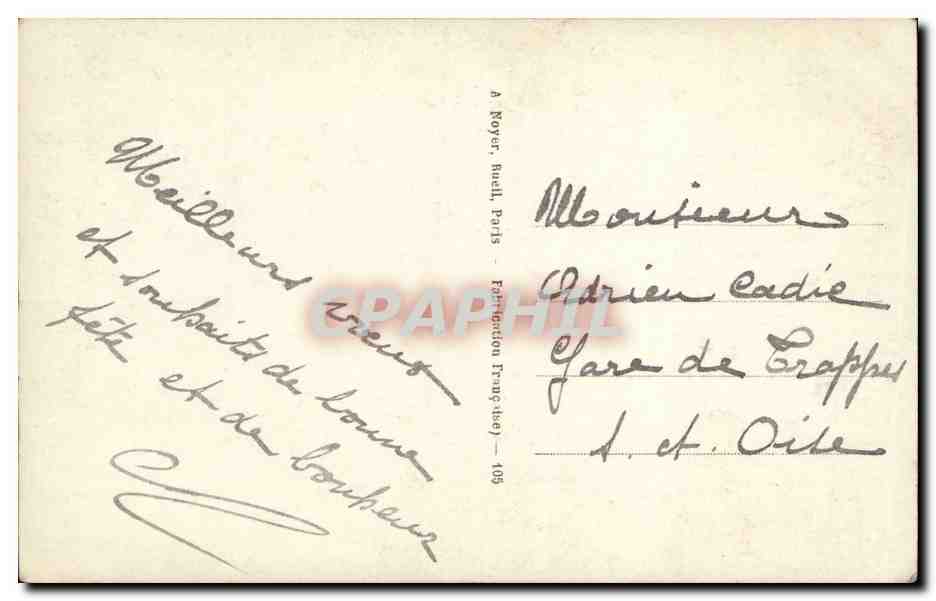 Meilleurs vœux
et souhaits de bonne
fête et de bonheur
A Noyer, Rueil, Paris - Fabrication Française) — 105
CPAPHIL
Monsieur
Adrien Cadie
Gare de Trappes
S. et. Oise